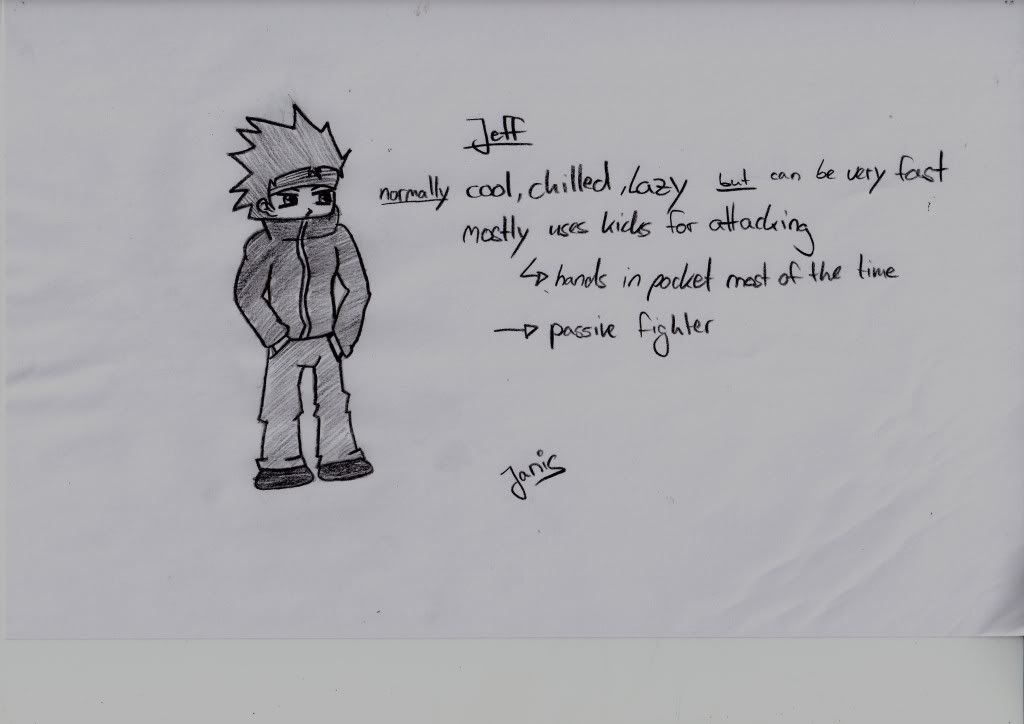 Jeff
normally cool, chilled, lazy but can be very fast
mostly uses kicks for attacking
↳ hands in pocket most of the time
→ passive fighter
Janis